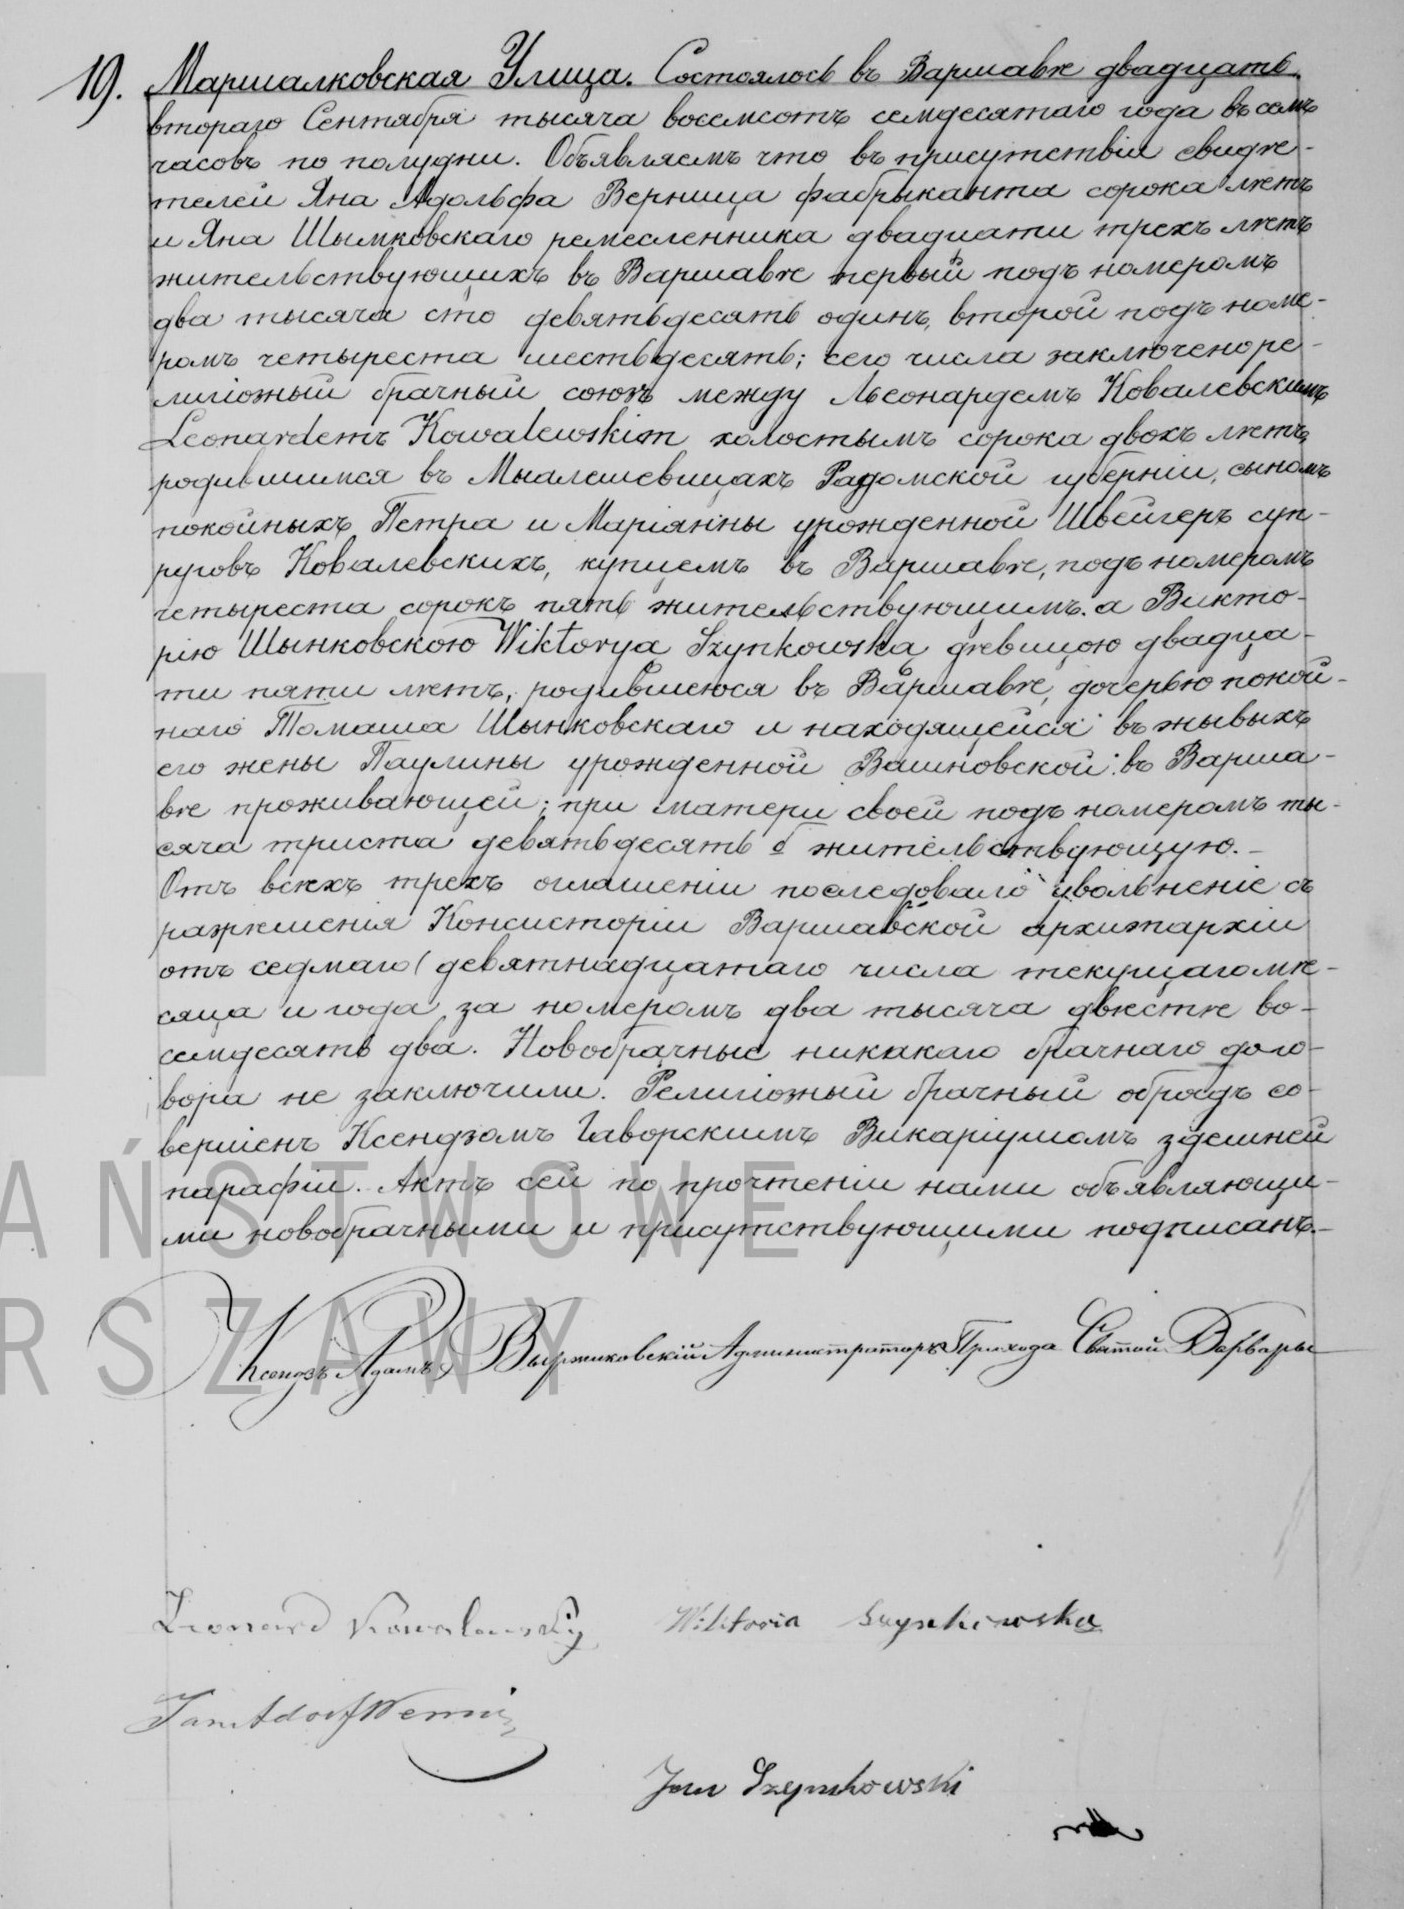 19. Маршалковская Улица. Состоялось въ Варшавѣ двадцать
втораго Сентября тысяча восемсотъ семдесятаго года въ семь
часовъ по полудни. Объявляемъ что въ присутствіи свидѣ-
телей Яна Адольфа Верница фабрыканта сорока лѣтъ
и Яна Шымковскаго ремесленника двадцати трехъ лѣтъ
жительствующихъ въ Варшавѣ первый подъ номеромъ
два тысяча сто девятьдесять одинъ, второй подъ номе-
ромъ четыреста шестьдесять; сего числа заключено ре-
лигіозный брачный союзъ между Льеонардемъ Ковалевскимъ
Leonardemъ Kowalewskim холостымъ сорока двохъ лѣтъ,
родившимся въ Мыалешевицахъ Радомской губерніи, сыномъ
покойныхъ Петра и Маріянны урожденной Швейгеръ суп-
руговъ Ковалевскихъ, купцемъ въ Варшавѣ, подъ номеромъ
четыреста сорокъ пять жительствующимъ. а Викто-
рію Шынковскою Wiktorya Szynkowską дѣвицою двадца-
ти пяти лѣтъ, родившеюся въ Варшавѣ, дочерью покой-
наго Томаша Шынковскаго и находящейся въ жывыхъ
его жены Паулины урожденной Вашновской: въ Варша-
вѣ проживающей; при матери своей подъ номеромъ ты-
сяча триста девятьдесять б жительствующую.-
Отъ всехъ трехъ оглашеніи последовало увольненіе съ
разрѣшенія Консисторіи Варшавской архитархіи
отъ седмаго/девятнадцатаго числа текущаго мѣ-
сяца и года за номеромъ два тысяча двѣстѣ во-
семдесять два. Новобрачные никакаго брачнаго дого-
вора не заключили. Религіозный брачный обрядъ со-
вершенъ Ксендзомъ Гаворскимъ Викаріушомъ здешней
парафіи. Актъ сей по прочтеніи нами объявляющи-
ми новобрачными и присутствующими подписанъ.-
Ксендзъ Адамъ Администраторъ Прихода Святой Варвары
Leonard Kowalewsky Wiktoria Szynkowska
Jan Adolf Wernic
Jan Szynkowski
AŃSTWOWE
RSZAWY